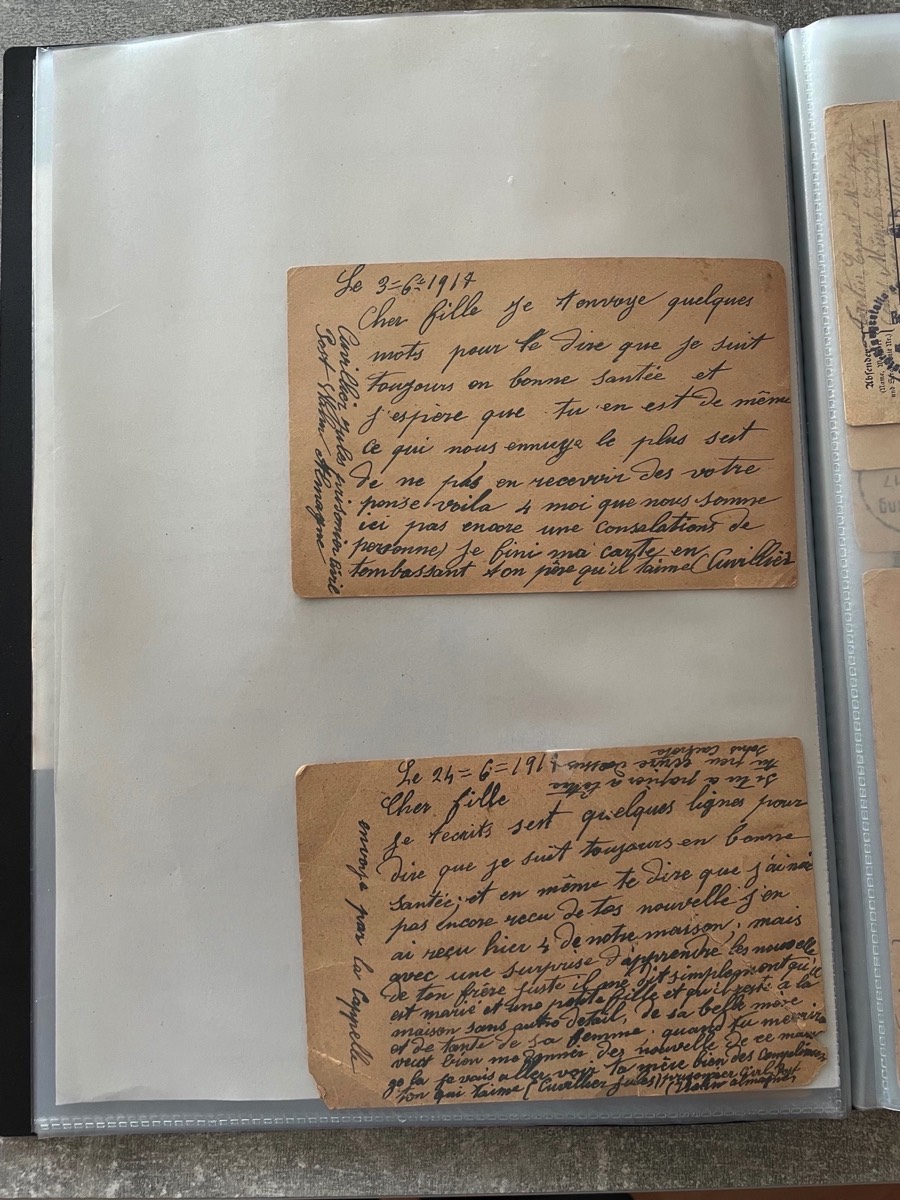 Le 3=6=1917
Cher fille je t'envoye quelques
mots pour te dire que je suit
toujours en bonne santée et
j'espère que tu en est de même
ce qui nous ennuye le plus sest
de ne pas en recevoir des votre
pense voila 4 moi que nous somme
ici pas encore une consolations de
personne) je fini ma carte en
t'embassant ton père qu'il t'aime (Cuvillier
Cuvillier jules prisonier civil
Post Wahn Almagne
Le 24=6=191
Cher fille
je t'ecrits sest quelques lignes pour
dire que je suit toujours en bonne
santée; et en même te dire que j'ai
pas encore recu de tes nouvelle j'en
ai reçu hier 4 de notre maison, mais
avec une surprise d'apprendre les nouvelle
de ton frère juste il me dit simplement qu'il
est marié et une petite fille et qu'il reste à la
maison sans autre detail, de sa belle mère
et de tante de sa femme. quand tu
veut bien me donner des nouvelle de ce
je vais aller voir ta mère bien des
ton qui t'aime (Cuvillier jules) prisonnier civil Post
(Wahn almagne)
envoye par la